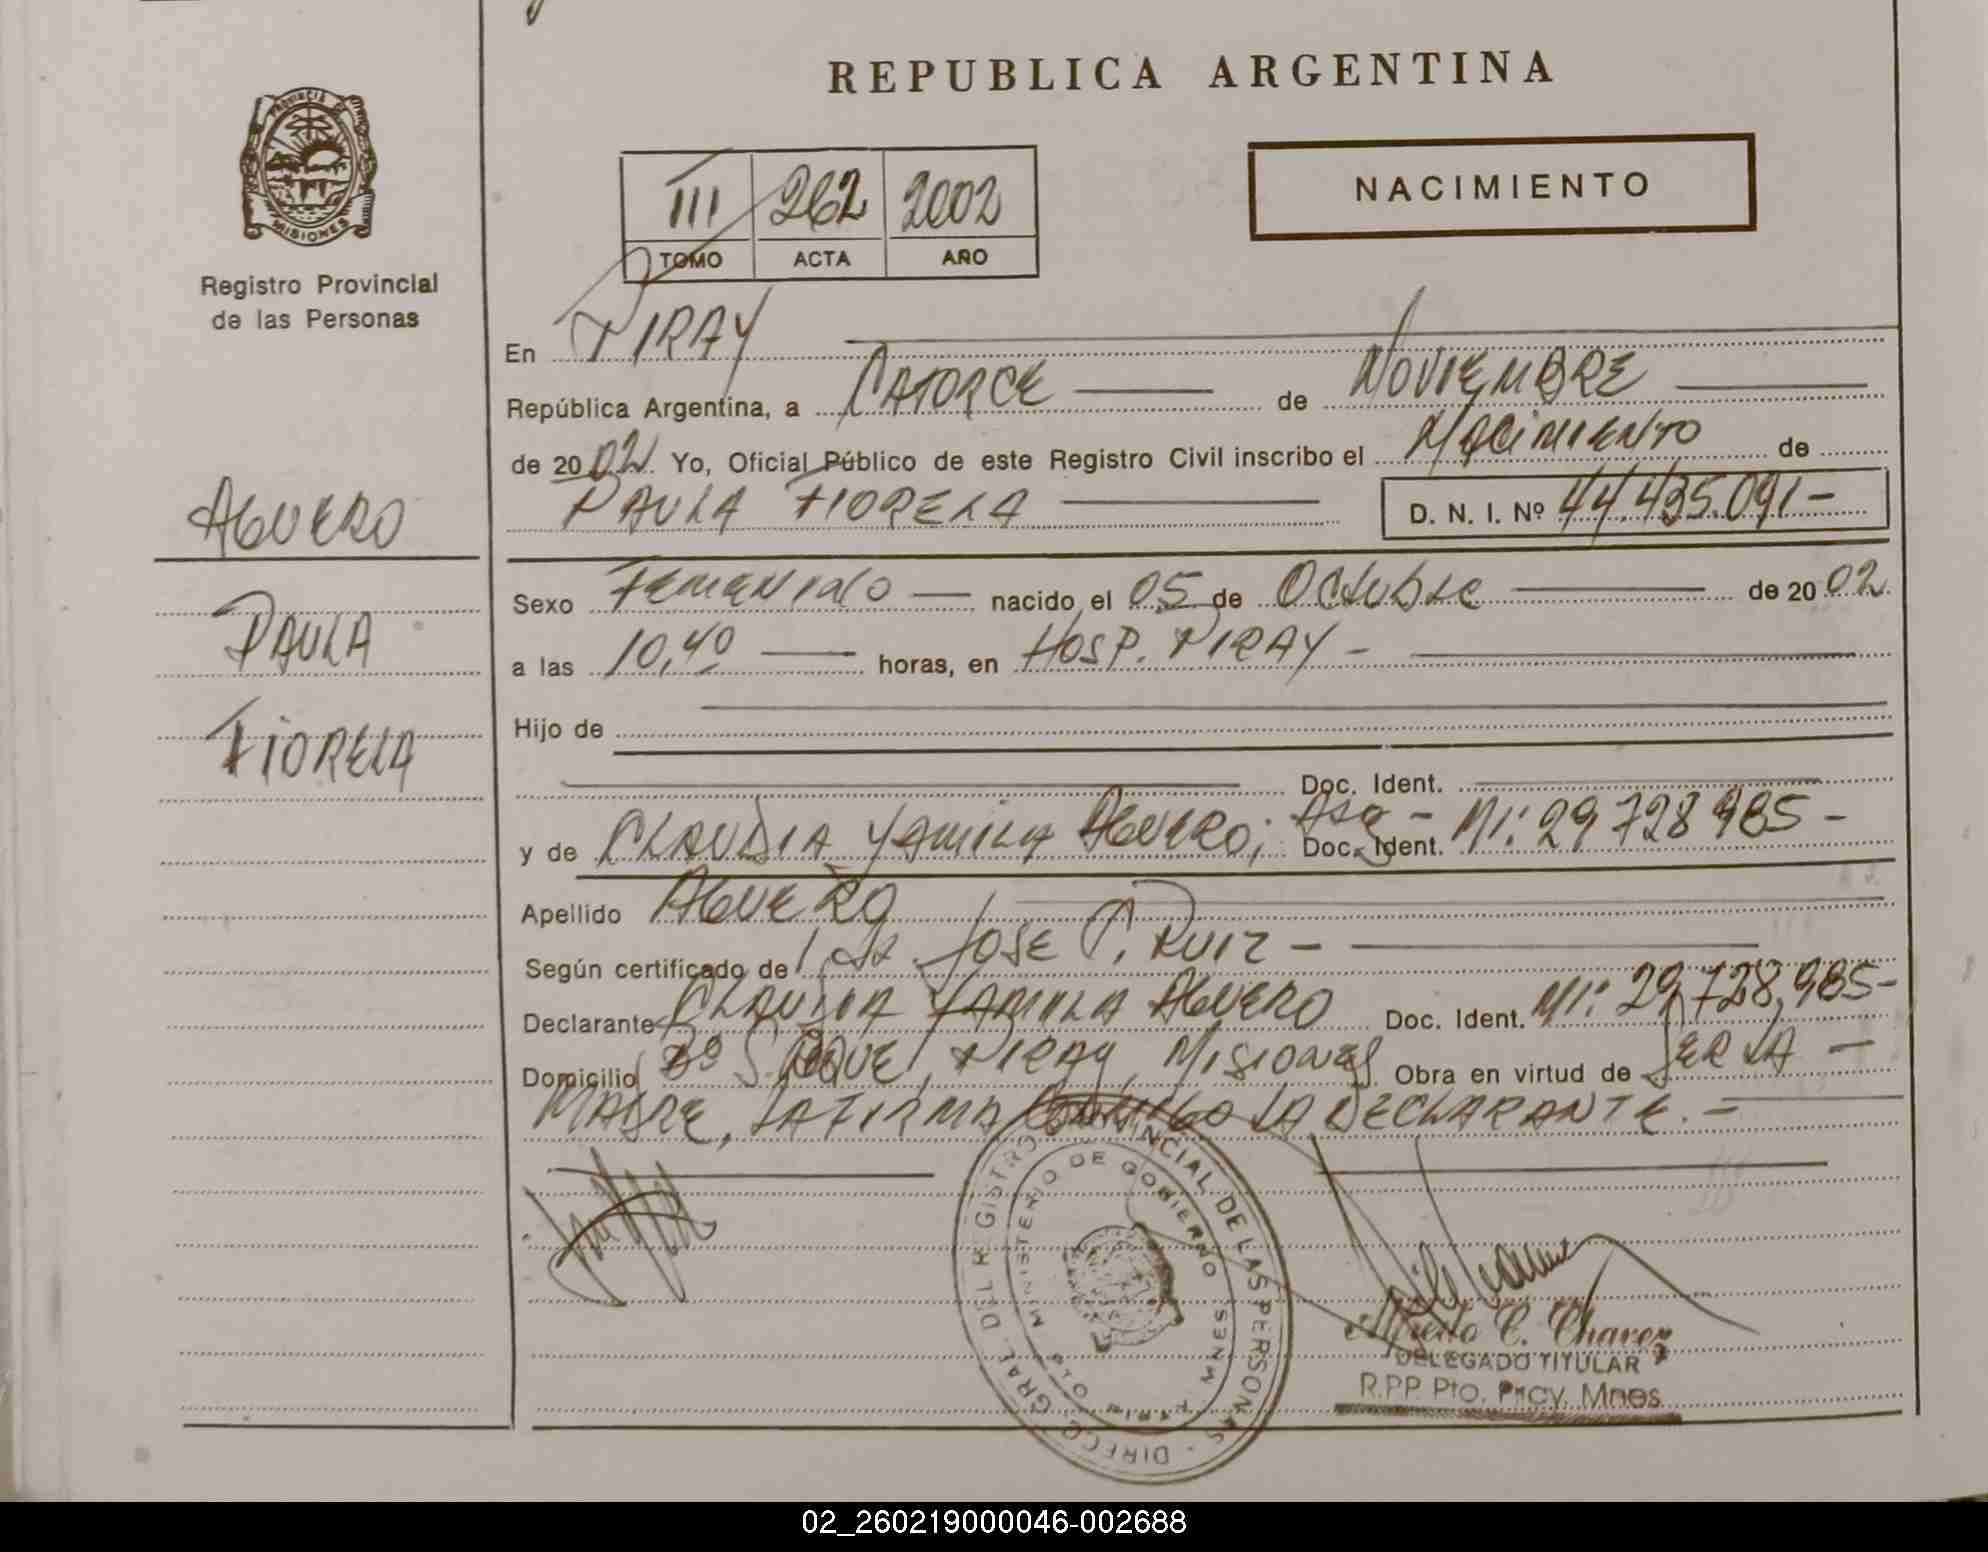 REPUBLICA ARGENTINA
PROVINCIA DE MISIONES
Registro Provincial
de las Personas
III 262 2002
TOMO ACTA AÑO
NACIMIENTO
En PIRAY
República Argentina, a CATORCE de NOVIEMBRE
de 2002 Yo, Oficial Público de este Registro Civil inscribo el NACIMIENTO de
PAULA FIORELA D. N. I. Nº 44.435.091-
AGUERO
PAULA
FIORELA
Sexo FEMENINO nacido el 05 de Octubre de 2002
a las 10,40 horas, en HOSP. PIRAY -
Hijo de
Doc. Ident.
y de CLAUDIA YAMILA AGUERO; Arg - Doc. Ident. MI: 29 728 985 -
Apellido AGUERO
Según certificado de JOSE P. RUIZ -
Declarante CLAUDIA YAMILA AGUERO Doc. Ident. MI: 29,728,985-
Domicilio Bº S. ROQUE, PIRAY, MISIONES Obra en virtud de SER LA -
MADRE, LA FIRMA CONMIGO LA DECLARANTE. -
DIRECC. GRAL. DEL REGISTRO PROVINCIAL DE LAS PERSONAS -
MINISTERIO DE GOBIERNO
MNES
Alfredo C. Chavez
DELEGADO TITULAR
R.P.P. Pto. Piray. Mnes
02_260219000046-002688